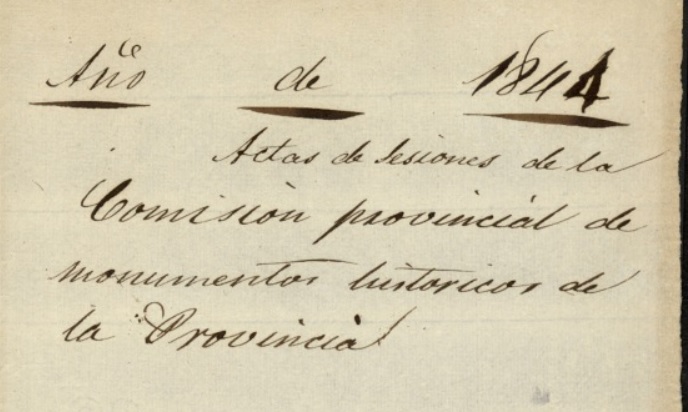 Año de 1844
Actas de Sesiones de la
Comisión provincial de
monumentos historicos de
la Provincia